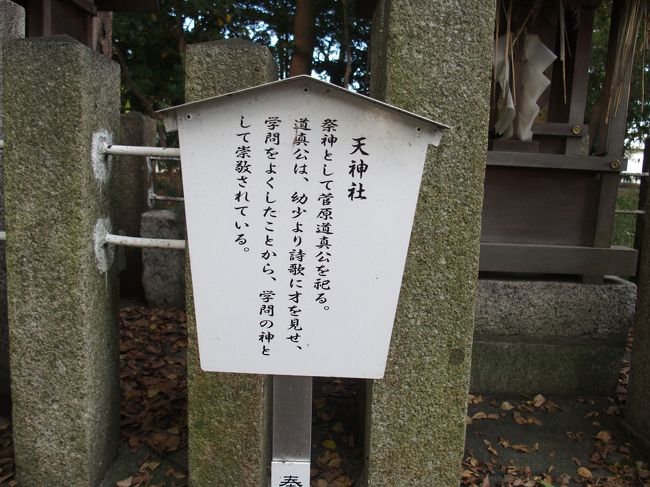 天神社
祭神として菅原道真公を祀る。
道真公は、幼少より詩歌に才を見せ、
学問をよくしたことから、学問の神と
して崇敬されている。
奉